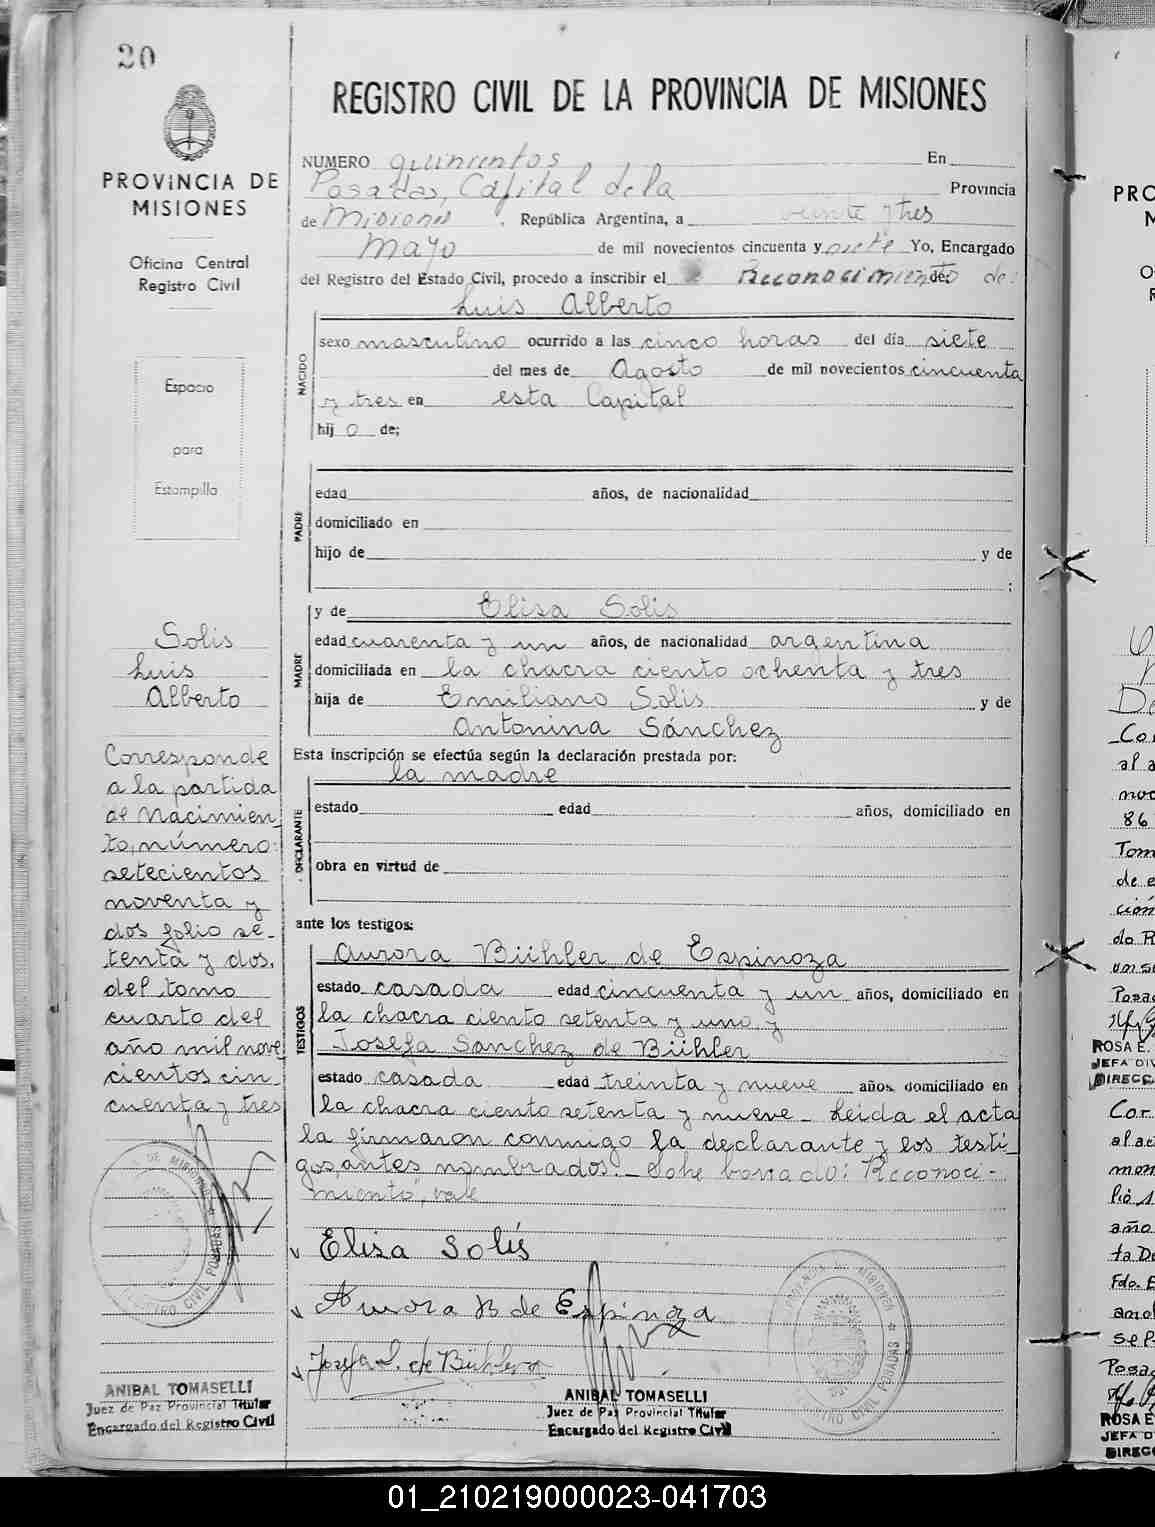 20
PROVINCIA DE
MISIONES
Oficina Central
Registro Civil
Espacio
para
Estampilla
Solis
Luis
Alberto
Corresponde
a la partida
de Nacimien_
to, número:
setecientos
noventa y
dos folio se_
tenta y dos,
del tomo
cuarto del
año mil nove_
cientos cin_
cuenta y tres
ANIBAL TOMASELLI
Juez de Paz Provincial Titular
Encargado del Registro Civil
REGISTRO CIVIL DE LA PROVINCIA DE MISIONES
NUMERO quinientos En
Posadas, Capital de la Provincia
de Misiones, República Argentina, a veinte y tres
Mayo de mil novecientos cincuenta y siete Yo, Encargado
del Registro del Estado Civil, procedo a inscribir el Reconocimiento de:
Luis Alberto
NACIDO
sexo masculino ocurrido a las cinco horas del día siete
del mes de Agosto de mil novecientos cincuenta
y tres en esta Capital
hijo de;
PADRE
edad años, de nacionalidad
domiciliado en
hijo de y de
;
MADRE
y de Elisa Solis
edad cuarenta y un años, de nacionalidad argentina
domiciliada en la chacra ciento ochenta y tres
hija de Emiliano Solis y de
Antonina Sánchez
Esta inscripción se efectúa según la declaración prestada por:
la madre
DECLARANTE
estado edad años, domiciliado en
obra en virtud de
ante los testigos:
TESTIGOS
Aurora Bühler de Espinoza
estado casada edad cincuenta y un años, domiciliado en
la chacra ciento setenta y uno y
Josefa Sanchez de Bühler
estado casada edad treinta y nueve años, domiciliado en
la chacra ciento setenta y nueve_ Leida el acta
la firmaron conmigo la declarante y los testi_
gos, antes nombrados._ Sobre borrado: "Reconoci-
miento", vale
Elisa Solís
Aurora B de Espinoza
Josefa S. de Bühler
ANIBAL TOMASELLI
Juez de Paz Provincial Titular
Encargado del Registro Civil
REGISTRO CIVIL POSADAS
01_210219000023-041703